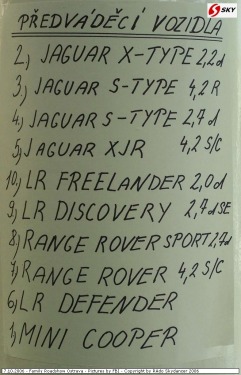 SKY
PŘEDVÁDĚCÍ VOZIDLA
2) JAGUAR X-TYPE 2,2d
3) JAGUAR S-TYPE 4,2R
4) JAGUAR S-TYPE 2,7d
5) JAGUAR XJR 4,2 S/C
10) LR FREELANDER 2,0d
9) LR DISCOVERY 2,7d SE
8) RANGE ROVER SPORT 2,7d
7) RANGE ROVER 4,2 S/C
6) LR DEFENDER
1) MINI COOPER
7.10.2006 - Family Roadshow Ostrava - Pictures by FBI - Copyright by Rádio Skydancer 2006